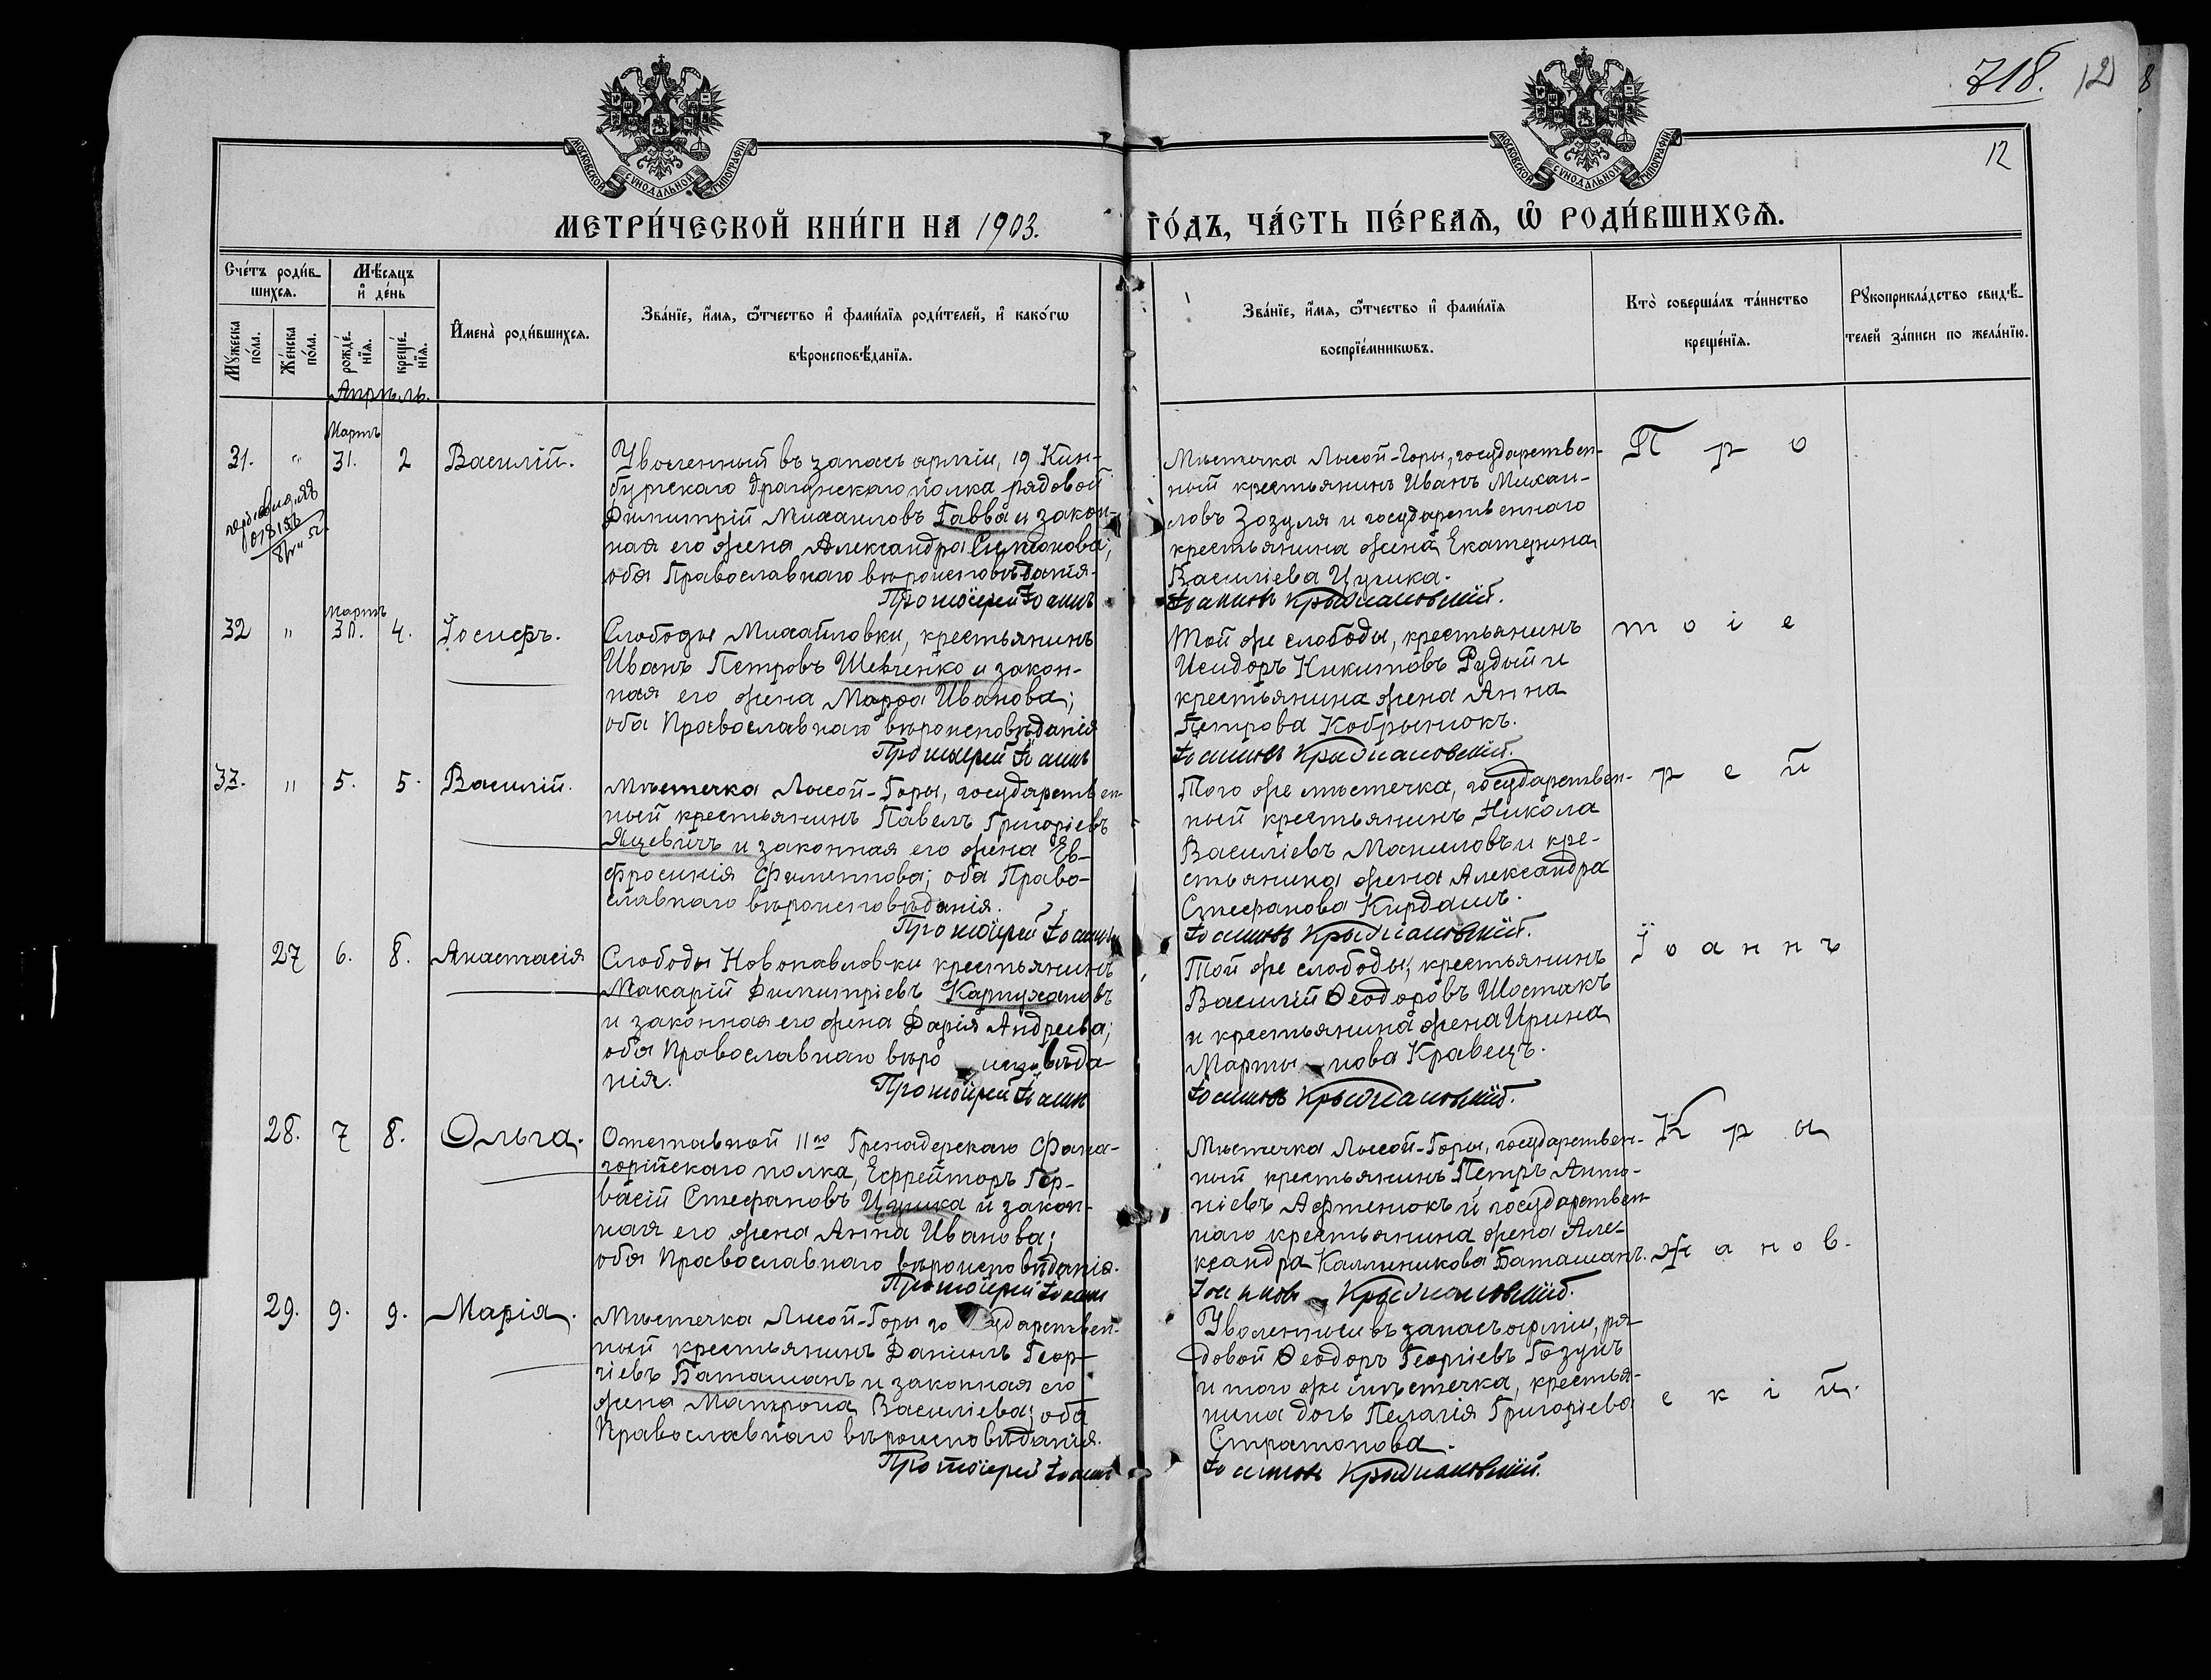 718. 12
12
МОСКОВСКОЙ СѴНОДАЛЬНОЙ ТИПОГРАФІИ
МОСКОВСКОЙ СѴНОДАЛЬНОЙ ТИПОГРАФІИ
МЕТРИ́ЧЕСКОЙ КНИ́ГИ НА 1903. ГО́ДЪ, ЧА́СТЬ ПЕ́РВАѦ, Ѽ РОДИ́ВШИХСѦ.
Сче́тъ роди́в-
шихсѧ.
Мѣ́сѧцъ
и҆ де́нь
Мꙋ́жеска
по́ла.
Же́нска
по́ла.
рожде́-
нїѧ.
креще́-
нїѧ.
И҆мена̀ роди́вшихсѧ.
Зва́нїе, и҆́мѧ, ѻ҆́тчество и҆ фами́лїѧ роди́телей, и҆ како́гѡ
вѣроисповѣ́данїѧ.
Зва́нїе, и҆́мѧ, ѻ҆́тчество и҆ фами́лїѧ
воспрїе́мникѡвъ.
Кто̀ соверша́лъ та́инство
креще́нїѧ.
Рꙋкоприкла́дство свидѣ́-
телей за́писи по жела́нїю.
Апрѣль.
Мартъ
31. " 31. 2 Василій.
Уволенный въ запасъ арміи, 19 Кин-
бургскаго драгунскаго полка рядовой
Димитрій Михаиловъ Гавва и закон-
ная его жена Александра Симонова;
оба Православнаго вѣроисповѣданія.
Протоіерей Іоаннъ
Мѣстечка Лысой-Горы, государствен-
ный крестьянинъ Иванъ Михаи-
ловъ Зозуля и государственнаго
крестьянина жена Екатерина
Василіева Цушка.
Іоаннъ Крыжановскій.
П р о
Мартъ
32 " 30. 4. Іосифъ.
Слободы Михайловки, крестьянинъ
Иванъ Петровъ Шевченко и закон-
ная его жена Марфа Иванова;
оба Православнаго вѣроисповѣданія
Протоіерей Іоаннъ
Той же слободы, крестьянинъ
Исидоръ Никитовъ Рудый и
крестьянина жена Анна
Петрова Кобрынюкъ.
Іоаннъ Крыжановскій.
т о і е
33. " 5. 5. Василій.
Мѣстечка Лысой-Горы, государствен
ный крестьянинъ Павелъ Григоріевъ
Яцевичъ и законная его жена Ев-
фросинія Филиппова; оба Право-
славнаго вѣроисповѣданія.
Протоіерей Іоаннъ
Того же мѣстечка, государствен-
ный крестьянинъ Никола
Василіевъ Маниловъ и кре-
стьянина жена Александра
Стефанова Кирдашъ.
Іоаннъ Крыжановскій.
р е й
27 6. 8. Анастасія
Слободы Новопавловки крестьянинъ
Макарій Димитріевъ Карпухановъ
и законная его жена Дарія Андреева;
оба Православнаго вѣро исповѣда-
нія.
Протоіерей Іоаннъ
Той же слободы, крестьянинъ
Василій Ѳеодоровъ Шостакъ
и крестьянина жена Ирина
Марты нова Кравецъ.
Іоаннъ Крыжановскій.
І о а н н ъ
28. 7 8. Ольга.
Отставной 11го Гренадерскаго Фана-
горійскаго полка, Ефрейторъ Гер-
васій Стефановъ Цушка и закон-
ная его жена Анна Иванова;
оба Православнаго вѣроисповѣданія.
Протоіерей Іоаннъ
Мѣстечка Лысой-Горы, государствен-
ный крестьянинъ Петръ Анто-
ніевъ Афтенюкъ и государствен
наго крестьянина жена Але-
ксандра Каллиникова Баташанъ.
Іоаннъ Крыжановскій.
К р ы
ж а н о в.
29. 9. 9. Марія.
Мѣстечка Лысой-Горы го ударствен-
ный крестьянинъ Даніилъ Геор-
гіевъ Баташанъ и законная его
жена Матрона Василіева; оба
Православнаго вѣроисповѣданія.
Протоіерей Іоаннъ
Уволенный въ запасъ арміи, ря-
довой Ѳеодоръ Георгіевъ Гозунъ
и того же мѣстечка, крестья-
нина дочь Пелагія Григоріева
Стратонова.
Іоаннъ Крыжановскій.
с к і й.